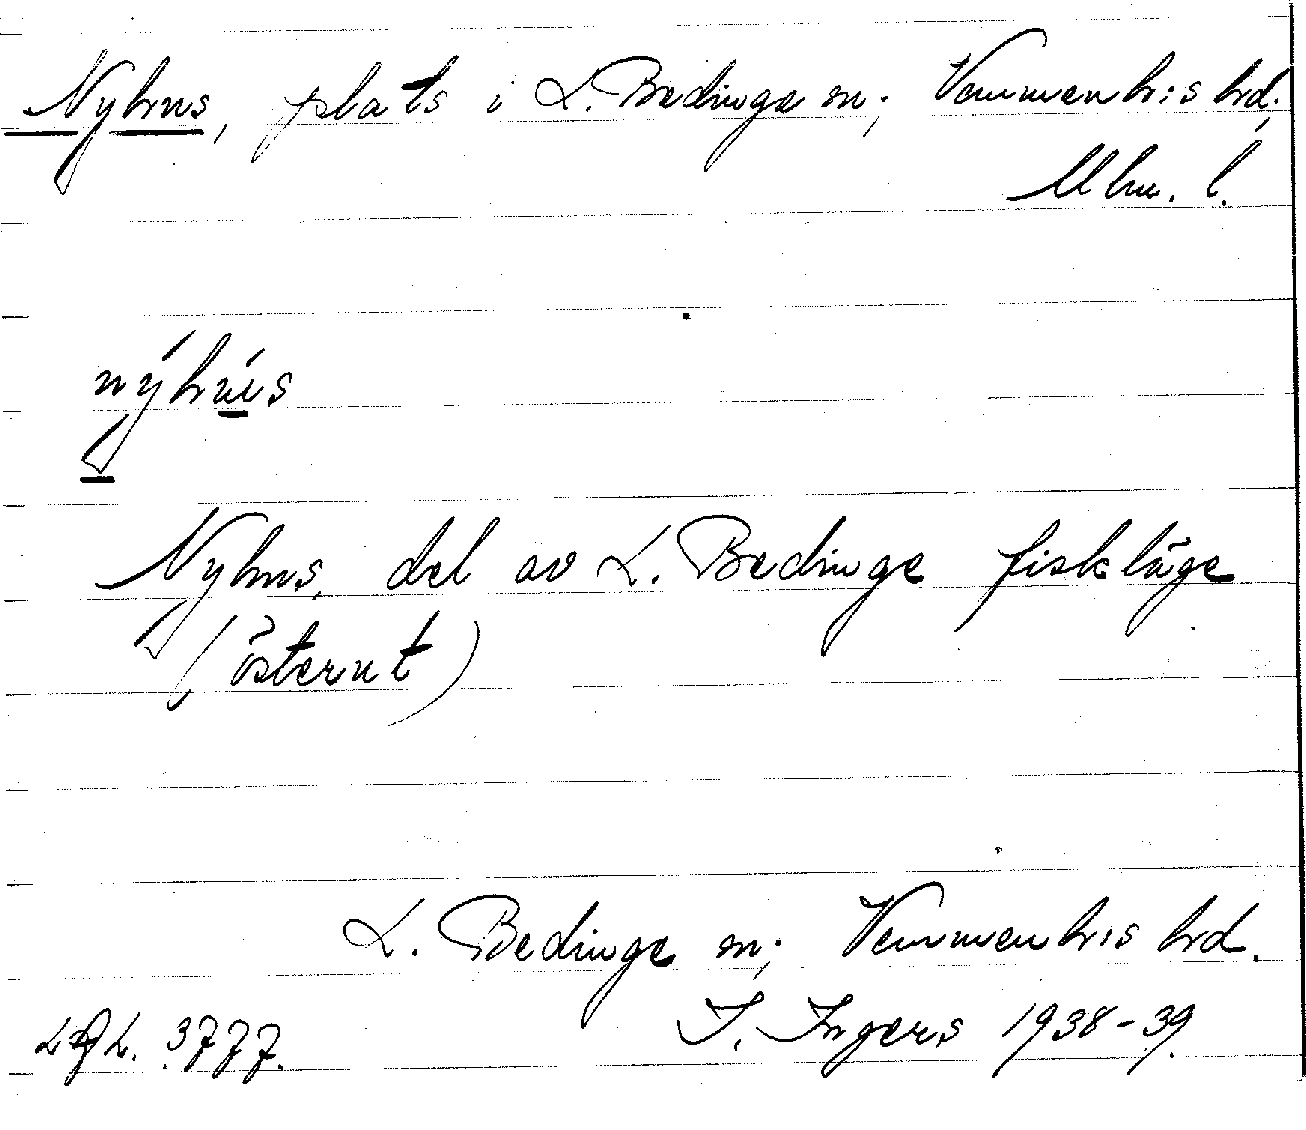 Nyhus, plats i L. Bedinge sn; Vemmenhris hrd.
Mlm. l.
nýhús
Nyhus, del av L. Bedinge fiskläge
(österut)
L. Bedinge sn; Vemmenhris hrd.
I. Ingers 1938-39.
3777.